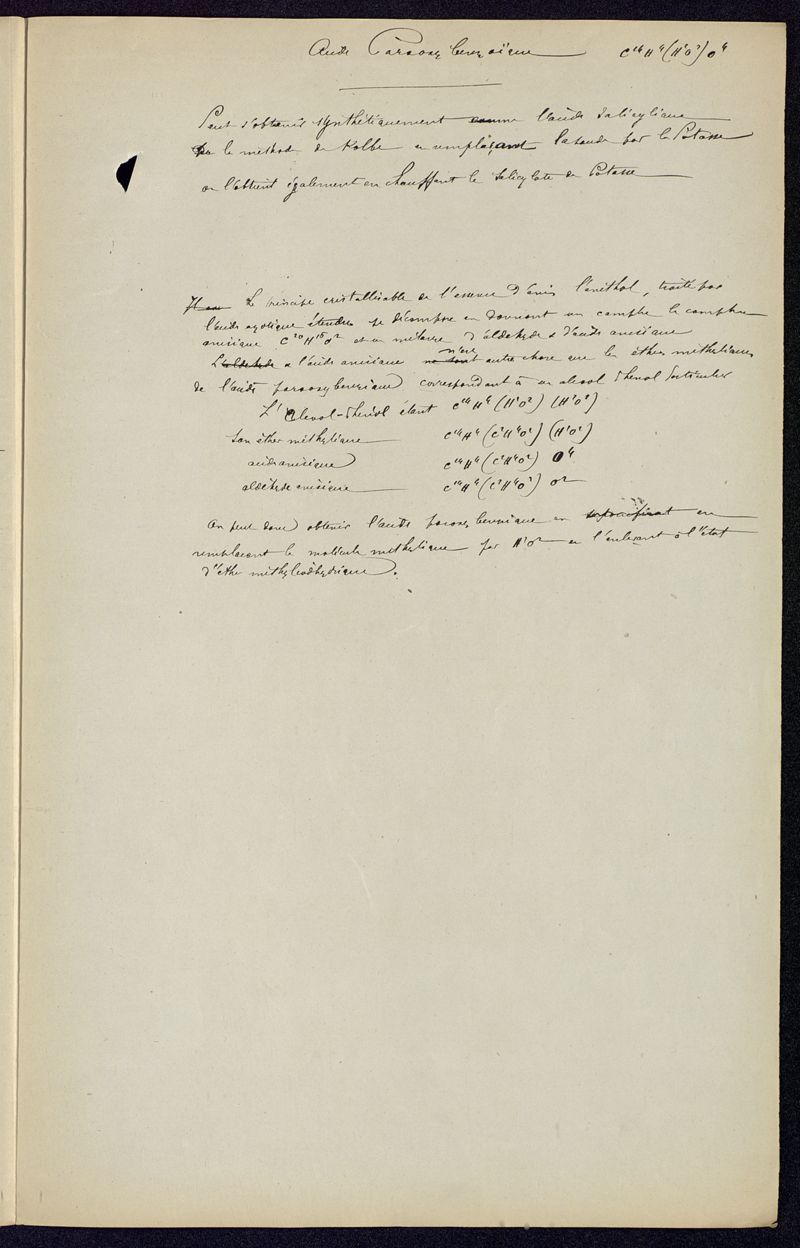 Acide Paraoxybenzoïque C¹⁴H⁴(H²O²)O⁴
Peut s'obtenir synthétiquement comme l'acide salicylique
par la méthode de Kolbe en remplaçant la soude par la Potasse
on l'obtient également en chauffant le salicylate de Potasse
Le principe cristallisable de l'essence d'anis l'anéthol, traité par
l'acide azotique étendu se décompose en donnant un camphre le camphre
anisique C²⁰H¹⁶O² et un mélange d'aldehyde & d'acide anisique
L'aldehyde & l'acide anisique ne sont n'est autre chose que les éthers méthyliques
de l'acide paraoxybenzoique correspondant à un alcool phenol particulier
L'alcool-phénol étant C¹⁴H⁴(H²O²)(H²O²)
son éther méthylique C¹⁴H⁴(C²H⁴O²)(H²O²)
acide anisique C¹⁴H⁴(C²H⁴O²)O⁴
aldéhyde anisique C¹⁴H⁴(C²H⁴O²)O²
On peut donc obtenir l'acide paraoxybenzoique en saponifiant en
remplacant la molécule méthylique par H²O² en l'enlevant à l'état
d'éther méthyliodhydrique.